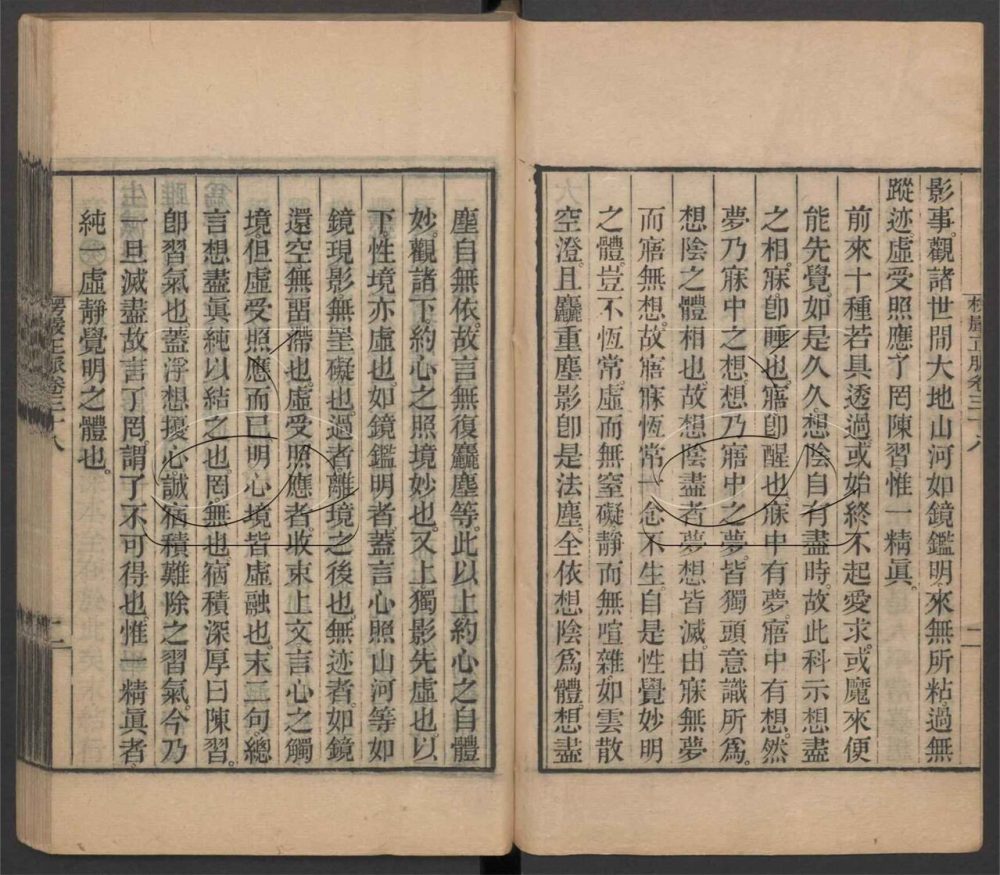 影事。觀諸世間大地山河如鏡鑑明。來無所粘。過無
蹤迹。虛受照應。了罔陳習。惟一精眞。
前來十種若具透過。或始終不起愛求。或魔來便
能先覺。如是久久。想陰自有盡時。故此科示想盡
之相。寐卽睡也。寤卽醒也。寐中有夢。寤中有想。然
夢乃寐中之想。想乃寤中之夢。皆獨頭意識所爲。
想陰之體相也。故想陰盡者。夢想皆滅。由寐無夢
而寤無想。故寤寐恆常。一念不生。自是性覺妙明
之體。豈不恆常虛而無窒礙。靜而無喧雜。如雲散
空澄。且麤重塵影卽是法塵。全依想陰爲體。想盡
楞嚴正脈卷三十八
塵自無依。故言無復麤塵等。此以上約心之自體
妙。觀諸下約心之照境妙也。又上獨影先虛也。以
下性境亦虛也。如鏡鑑明者。蓋言心照山河等如
鏡現影無罣礙也。過者。離境之後也。無迹者。如鏡
還空無畱滯也。虛受照應者。收束上文言心之觸
境但虛受照應而已。明心境皆虛融也。末二句。總
言想盡眞純以結之也。罔。無也。宿積深厚曰陳習。
卽習氣也。蓋浮想擾心。誠宿積難除之習氣。今乃
一旦滅盡。故言了罔。謂了不可得也。惟一精眞者。
純一虛靜覺明之體也。
楞嚴正脈卷三十八
二